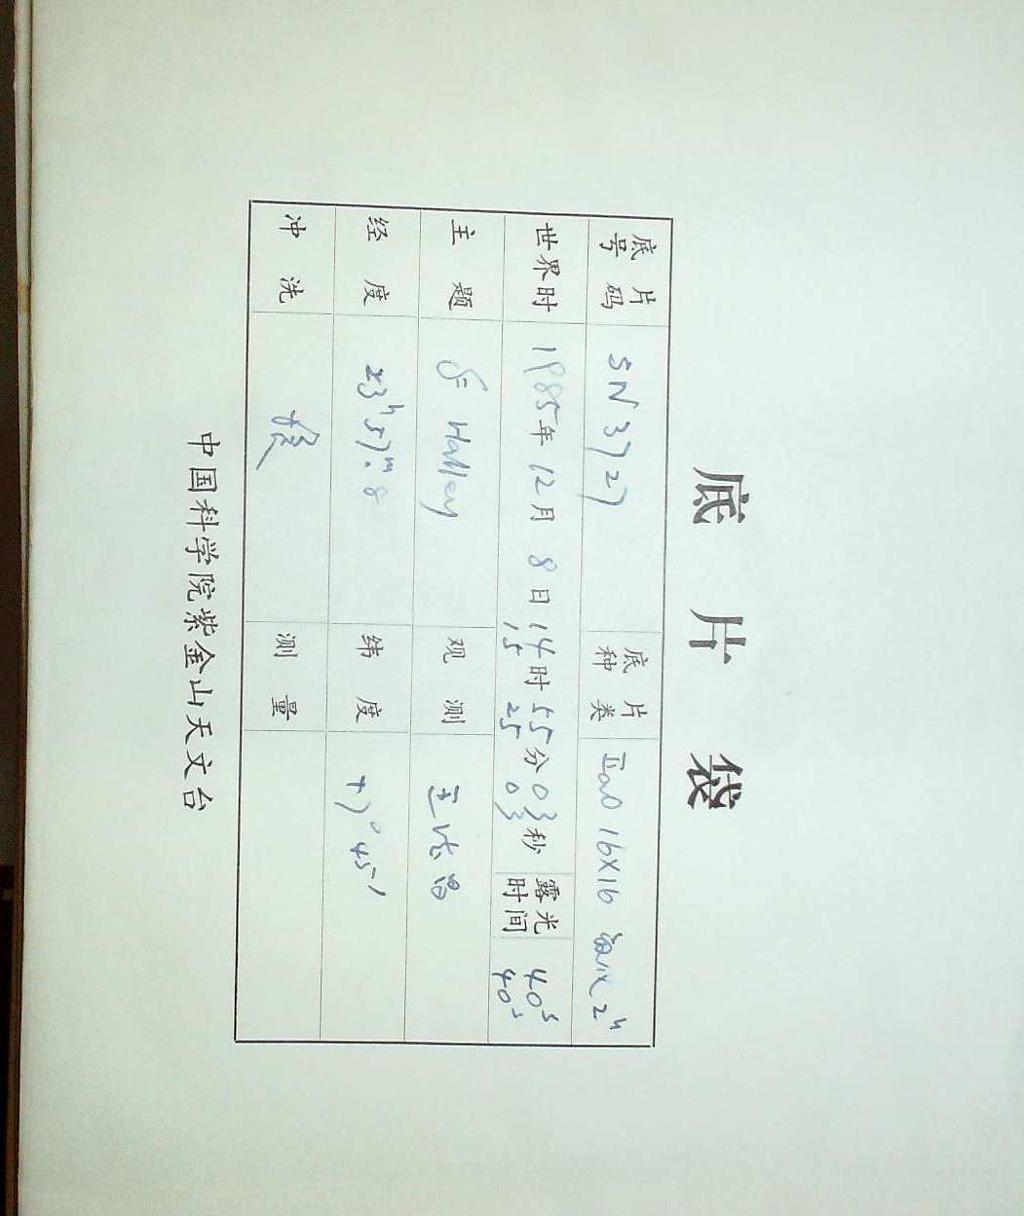 底 片 袋
底片号码 SN3727 底片种类 IIaO 16×16 敏化 2h
世界时 1985年12月8日14时55分03秒 露光时间 40s
15 25 03 40s
主题 Halley 观测
经度 23h57m.8 纬度 +7°45′
冲洗 测量
中国科学院紫金山天文台